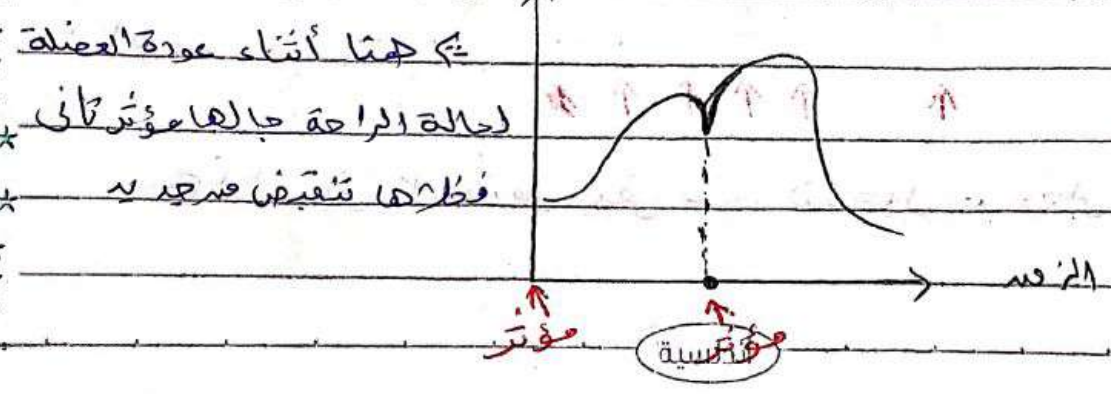 ⇐ هنا أثناء عودة العضلة
لحالة الراحة جالها مؤثر تانى
فخلاها تنقبض من جديد
الزمن
مؤثر
مؤثر